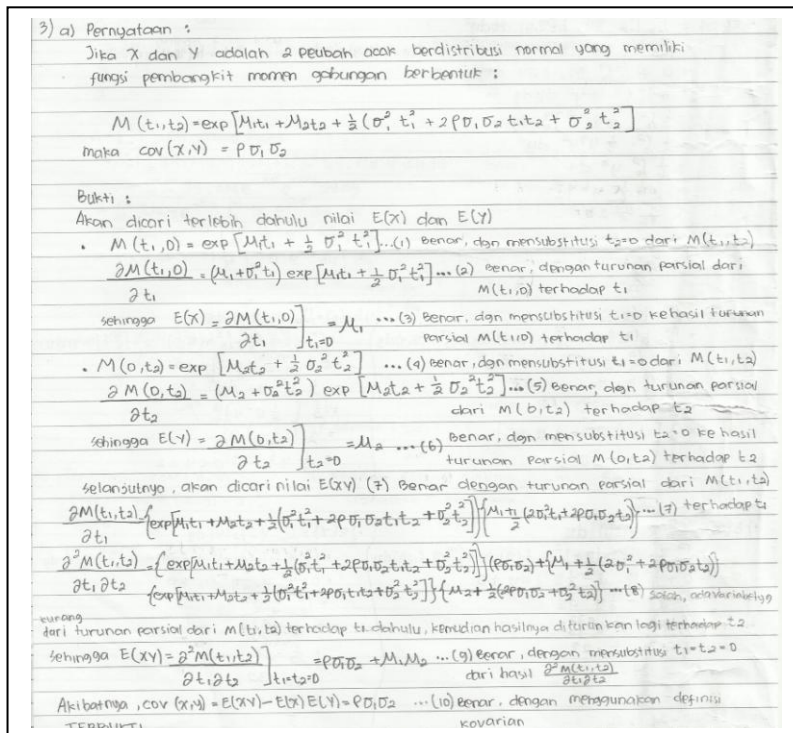 3) a) Pernyataan :
Jika X dan Y adalah 2 peubah acak berdistribusi normal yang memiliki
fungsi pembangkit momen gabungan berbentuk :
M(t₁,t₂) = exp [μ₁t₁ + μ₂t₂ + ½(σ₁² t₁² + 2ρσ₁σ₂ t₁t₂ + σ₂² t₂²]
maka cov(X,Y) = ρσ₁σ₂
Bukti :
Akan dicari terlebih dahulu nilai E(X) dan E(Y)
• M(t₁,0) = exp [μ₁t₁ + ½ σ₁² t₁²] ...(1) Benar, dgn mensubstitusi t₂=0 dari M(t₁,t₂)
∂M(t₁,0)/∂t₁ = (μ₁+σ₁²t₁) exp [μ₁t₁ + ½ σ₁² t₁²] ...(2) Benar, dengan turunan parsial dari
M(t₁,0) terhadap t₁
sehingga E(X) = ∂M(t₁,0)/∂t₁ ]t₁=0 = μ₁ ...(3) Benar, dgn mensubstitusi t₁=0 ke hasil turunan
parsial M(t₁,0) terhadap t₁
• M(0,t₂) = exp [μ₂t₂ + ½ σ₂² t₂²] ...(4) Benar, dgn mensubstitusi t₁=0 dari M(t₁,t₂)
∂M(0,t₂)/∂t₂ = (μ₂ + σ₂²t₂²) exp [μ₂t₂ + ½ σ₂² t₂²] ...(5) Benar, dgn turunan parsial
dari M(0,t₂) terhadap t₂
sehingga E(Y) = ∂M(0,t₂)/∂t₂ ]t₂=0 = μ₂ ...(6) Benar, dgn mensubstitusi t₂=0 ke hasil
turunan parsial M(0,t₂) terhadap t₂
selanjutnya, akan dicari nilai E(XY) (7) Benar dengan turunan parsial dari M(t₁,t₂)
∂M(t₁,t₂)/∂t₁ = {exp[μ₁t₁ + μ₂t₂ + ½(σ₁²t₁² + 2ρσ₁σ₂t₁t₂ + σ₂²t₂²]}{μ₁+½(2σ₁²t₁+2ρσ₁σ₂t₂)} ...(7) terhadap t₁
∂²M(t₁,t₂)/∂t₁∂t₂ = {exp[μ₁t₁ + μ₂t₂ + ½(σ₁²t₁² + 2ρσ₁σ₂t₁t₂ + σ₂²t₂²]}(ρσ₁σ₂) + {μ₁ + ½(2σ₁² + 2ρσ₁σ₂t₂)}
{exp[μ₁t₁ + μ₂t₂ + ½(σ₁²t₁² + 2ρσ₁t₁t₂ + σ₂²t₂²]}{μ₂ + ½(2ρσ₁σ₂ + σ₂²t₂)} ...(8) salah, ada variabel yg
kurang
dari turunan parsial dari M(t₁,t₂) terhadap t₁ dahulu, kemudian hasilnya diturunkan lagi terhadap t₂
sehingga E(XY) = ∂²M(t₁,t₂)/∂t₁∂t₂ ]t₁=t₂=0 = ρσ₁σ₂ + μ₁μ₂ ...(9) Benar, dengan mensubstitusi t₁=t₂=0
dari hasil ∂²M(t₁,t₂)/∂t₁∂t₂
Akibatnya, cov (x,y) = E(XY) - E(X) E(Y) = ρσ₁σ₂ ...(10) Benar, dengan menggunakan definisi
kovarian
TERBUKTI